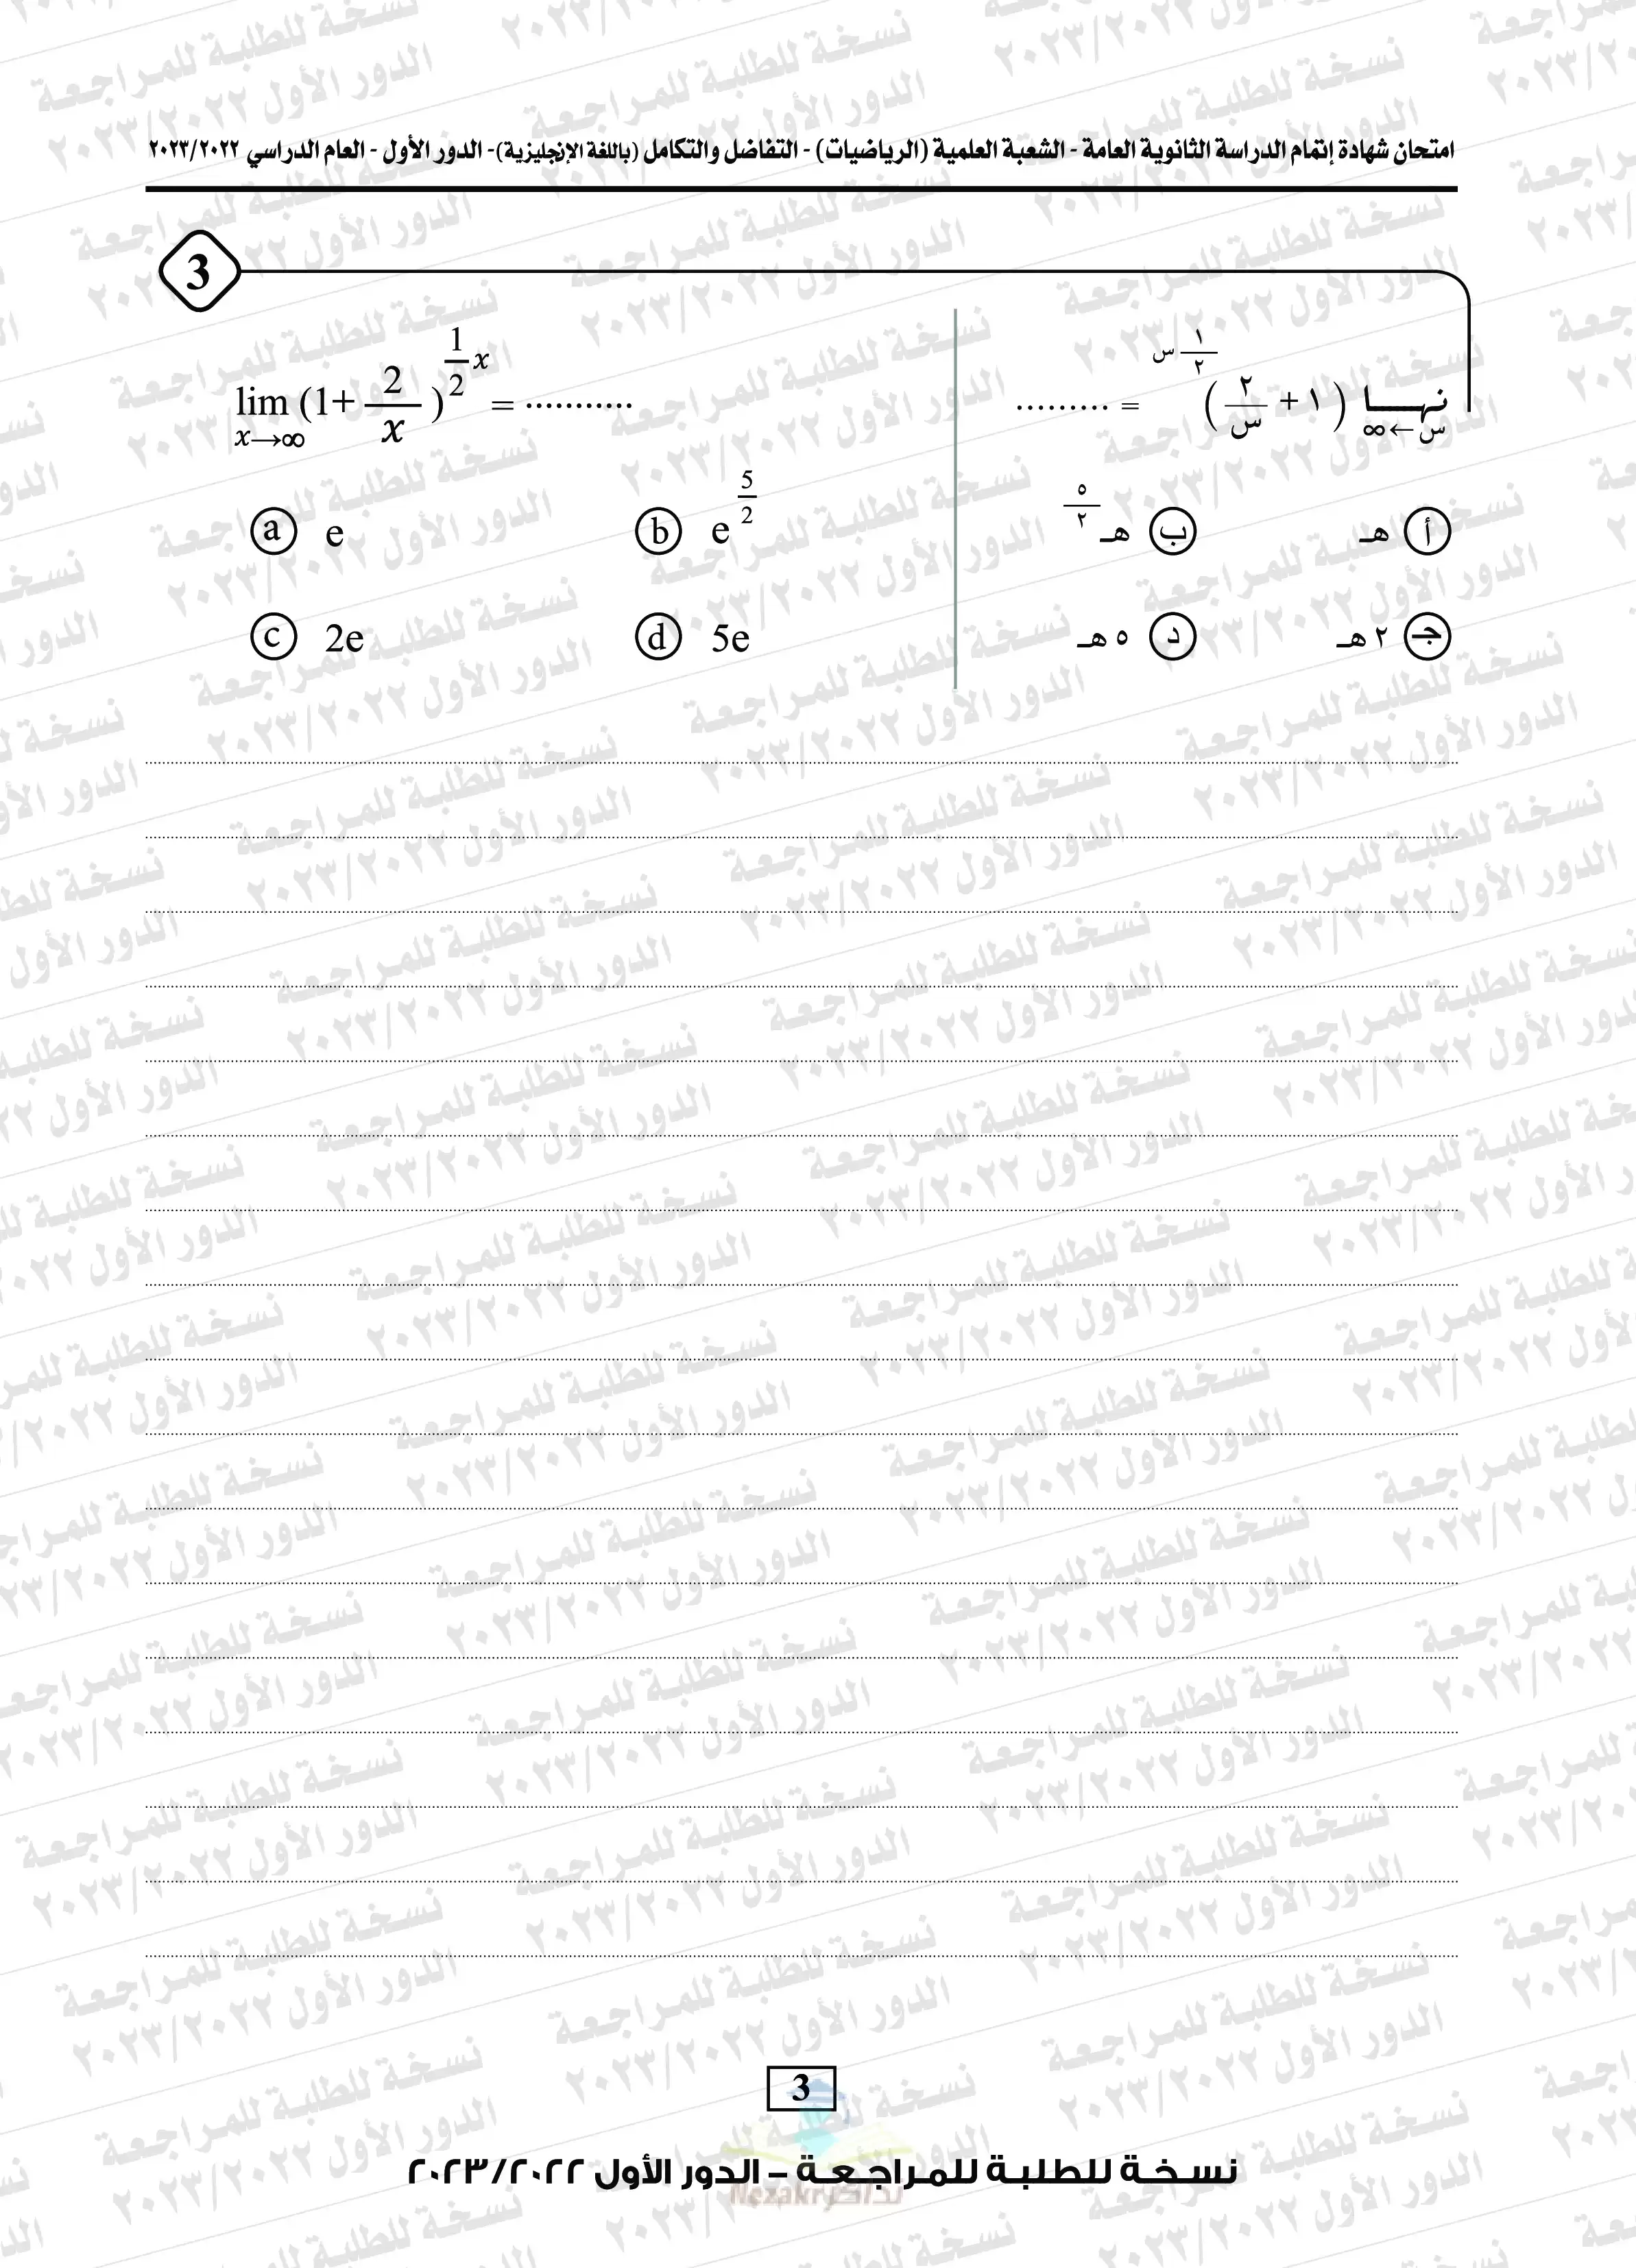 امتحان شهادة إتمام الدراسة الثانوية العامة - الشعبة العلمية (الرياضيات) - التفاضل والتكامل (باللغة الإنجليزية)- الدور الأول - العام الدراسي ٢٠٢٣/٢٠٢٢
3
lim x→∞ (1+ 2/x )^(1/2 x) = ...........
نهـــا س←∞ ( ١ + ٢/س )^(١/٢ س) = .........
a e
b e^(5/2)
أ هـ
ب هـ^(٥/٢)
c 2e
d 5e
جـ ٢ هـ
د ٥ هـ
3
نسـخـة للطلبـة للمـراجـعـة – الـدور الأول ٢٠٢٣/٢٠٢٢
Nezakr نذاكر
نسخة للطلبة للمراجعة
الدور الأول ٢٠٢٣/٢٠٢٢